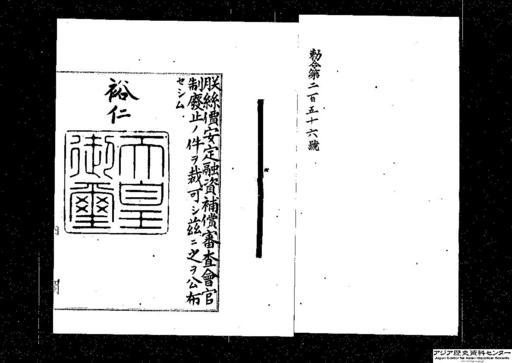 勅令第二百五十六號
朕絲價安定融資補償審査會官
制廢止ノ件ヲ裁可シ玆ニ之ヲ公布
セシム
裕仁
天皇
御璽
アジア歴史資料センター
Japan Center for Asian Historical Records